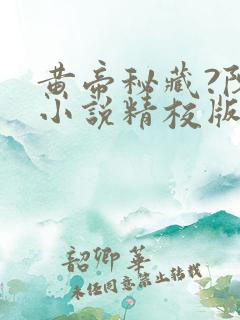 黄帝秘藏?阴
小说精校版
韶卿华
未经同意禁止转载